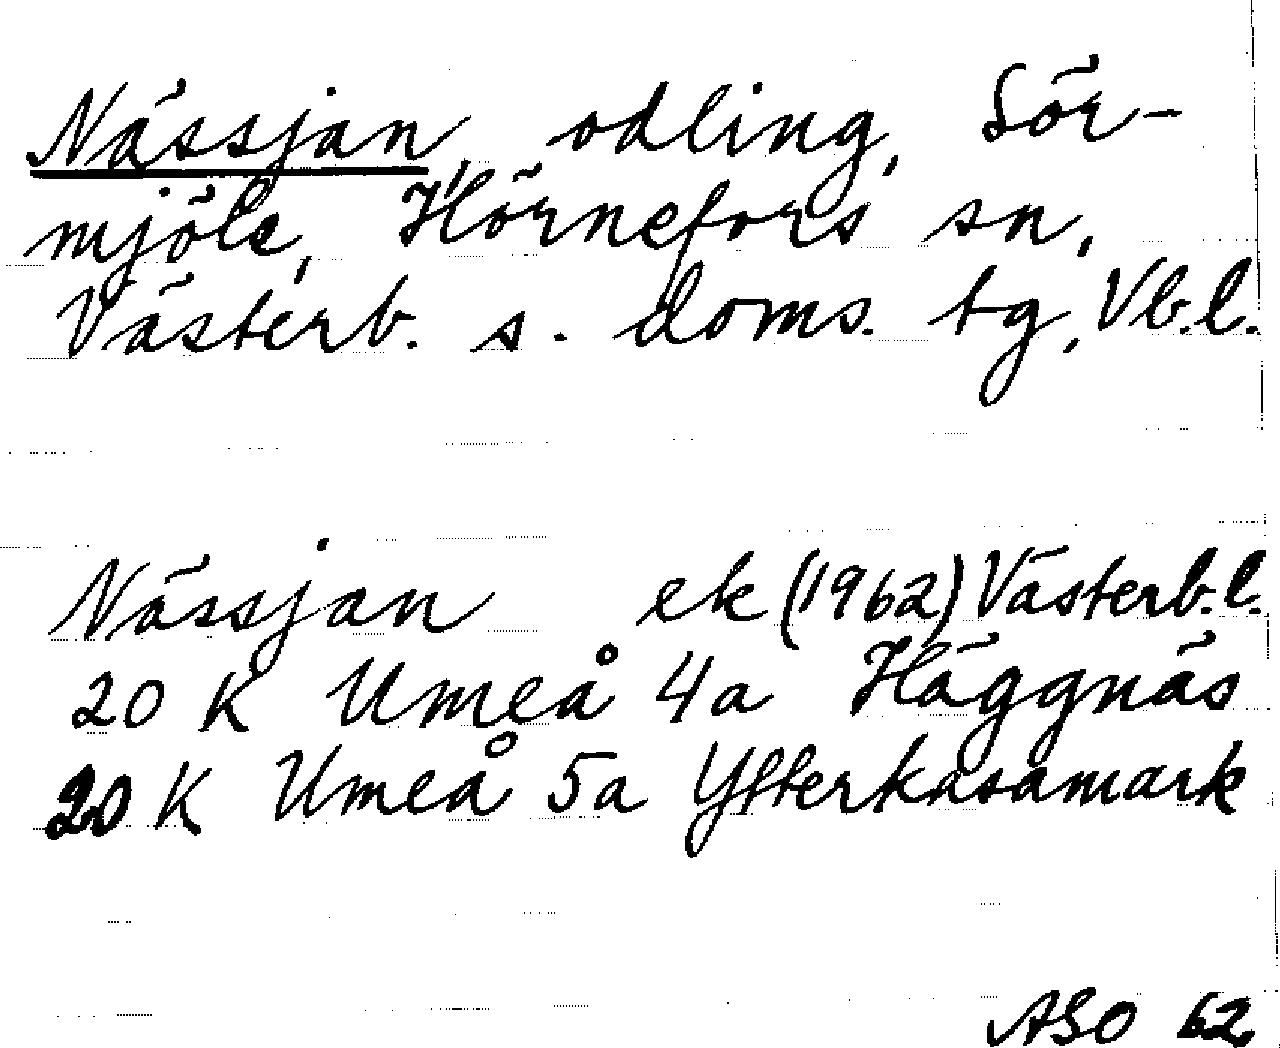 Nässjan, odling, Sör-
mjöle, Hörnefors sn,
Västerb. s. doms. tg, Vb.l.
Nässjan ek (1962) Västerb.l.
20 K Umeå 4a Häggnäs
20 K Umeå 5a Ytterkasamark
ASO 62